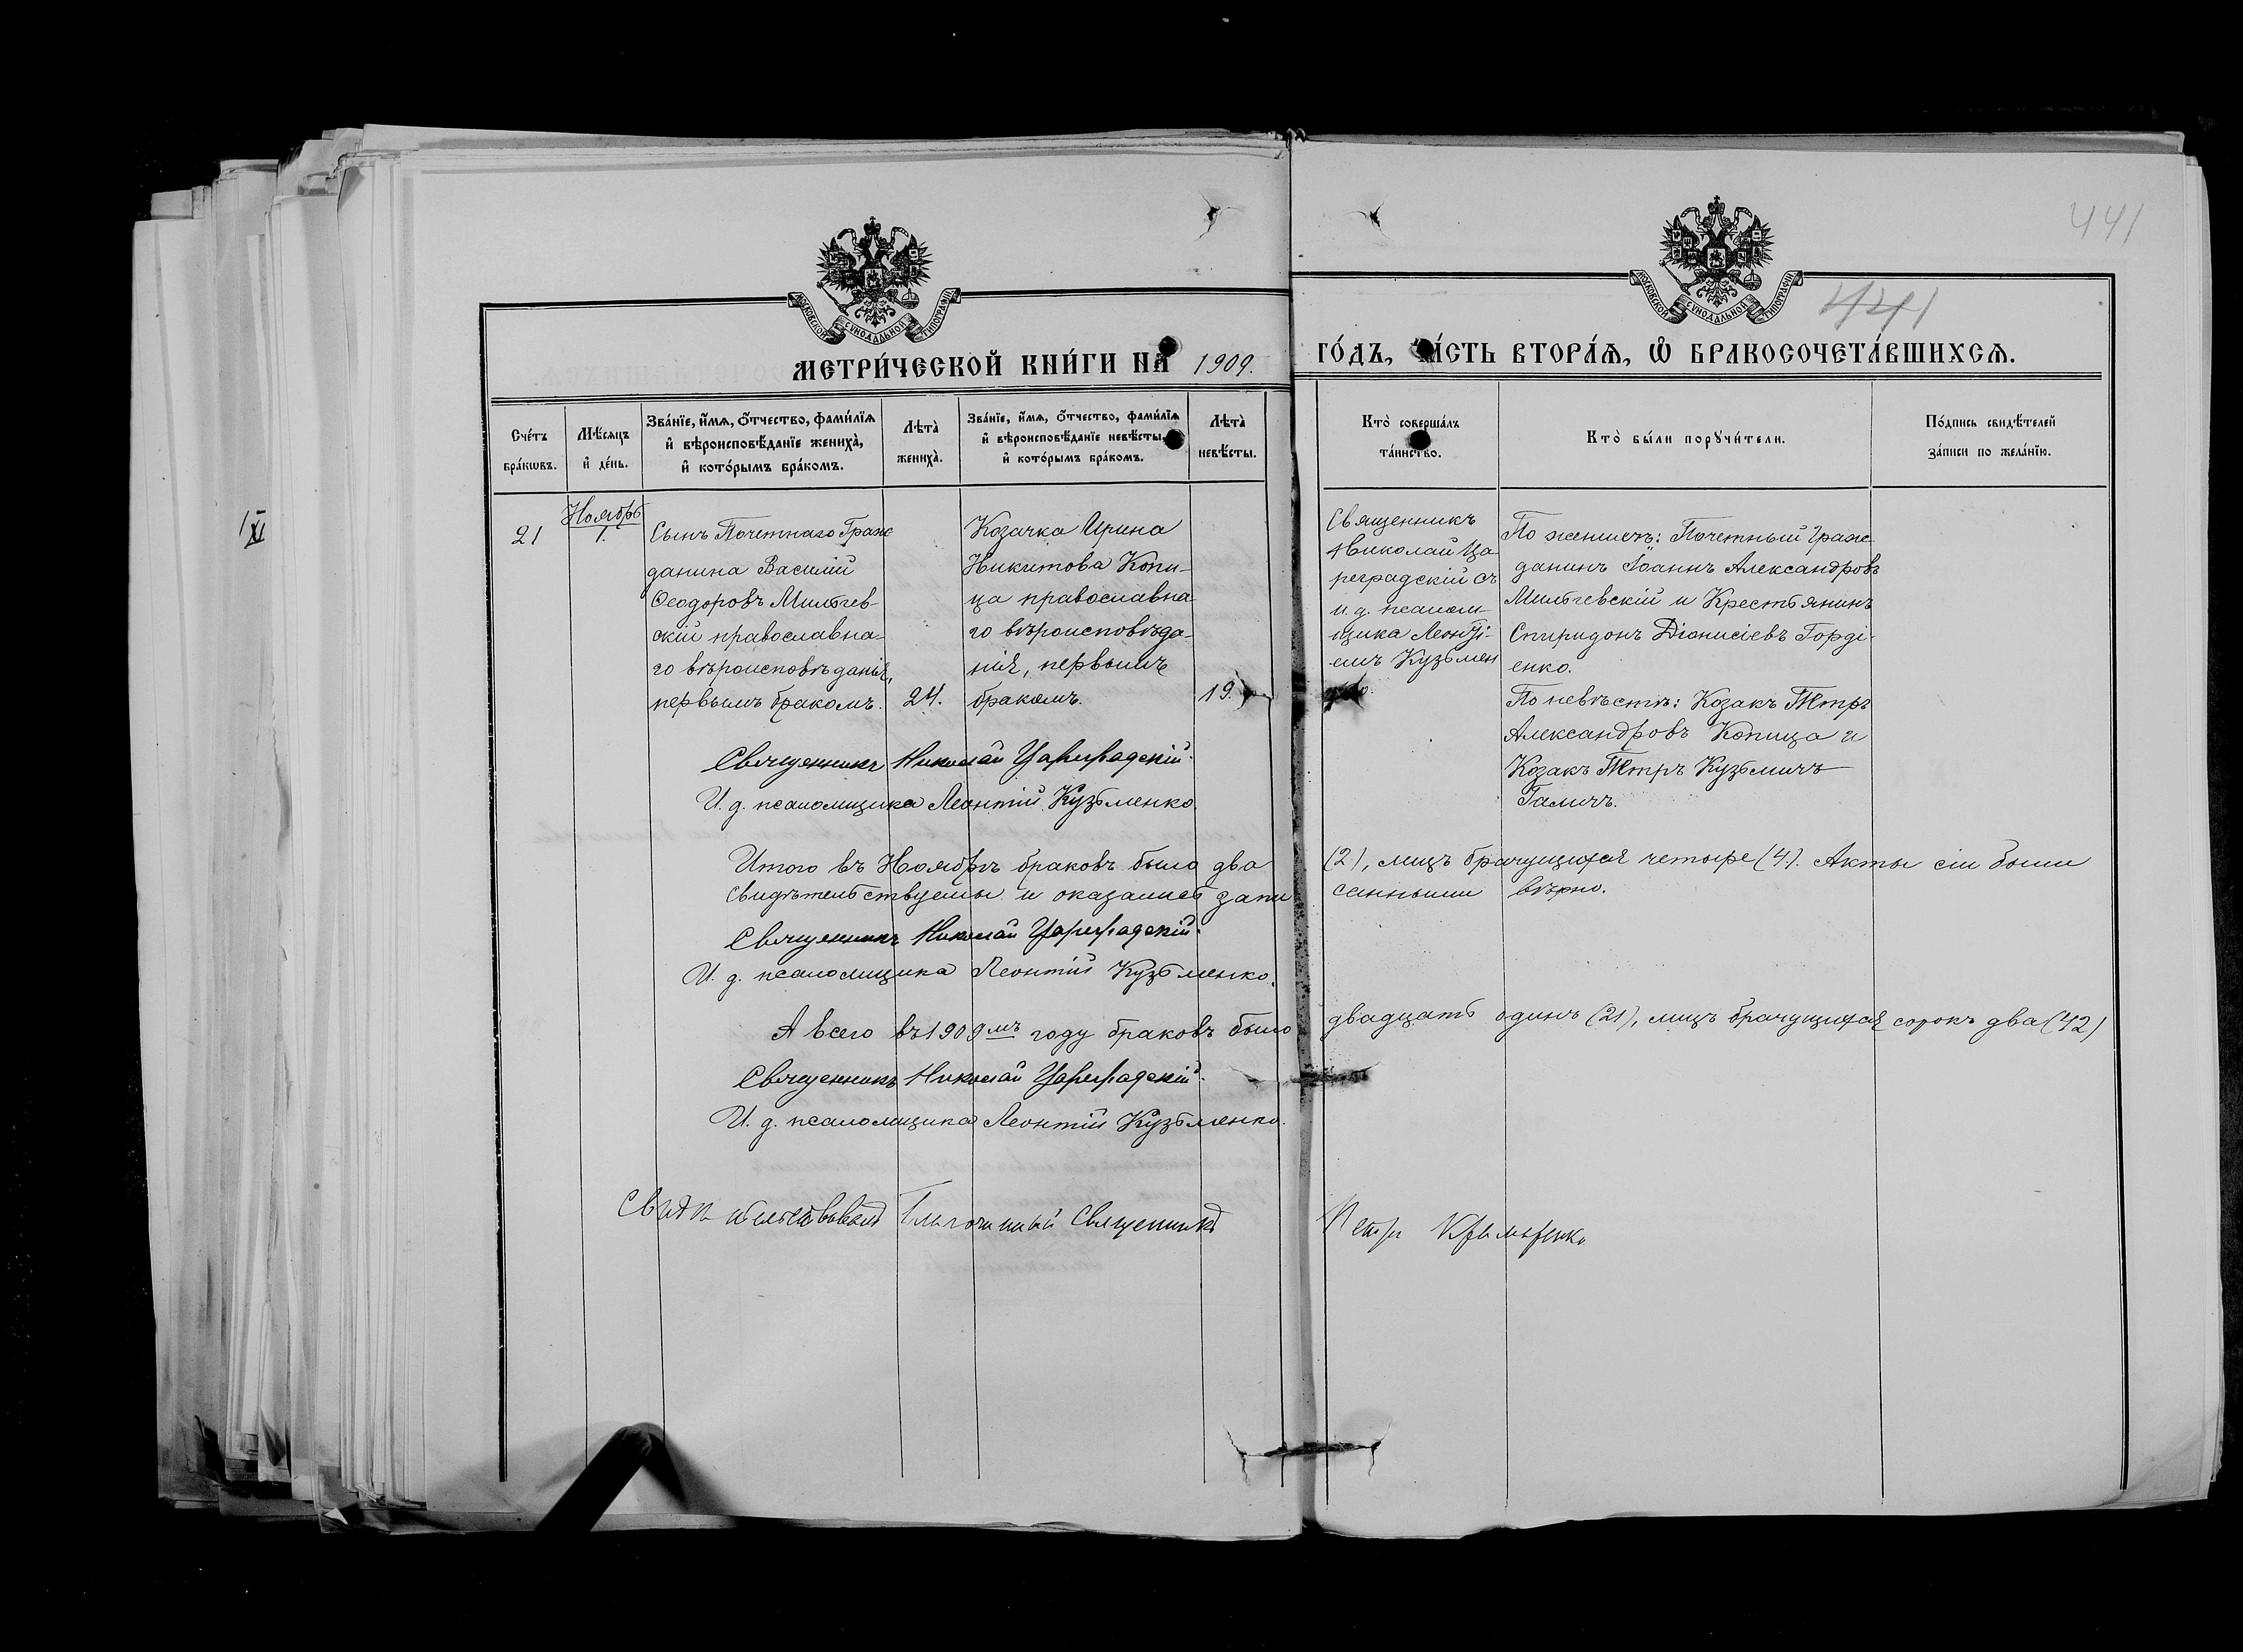 441
441
МОСКОВСКОЙ СѴНОДАЛЬНОЙ ТИПОГРАФІИ
МОСКОВСКОЙ СѴНОДАЛЬНОЙ ТИПОГРАФІИ
МЕТРИ́ЧЕСКОЙ КНИ́ГИ НА 1909. ГО́ДЪ, ЧА́СТЬ ВТОРА́Ѧ, Ѽ БРАКОСОЧЕТА́ВШИХСѦ.
Сче́тъ
бра́кѡвъ.
Мѣ́сѧцъ
и҆ де́нь.
Зва́нїе, и҆́мѧ, ѻ҆́тчество, фами́лїѧ
и҆ вѣроисповѣ́данїе жениха̀,
и҆ кото́рымъ бра́комъ.
Лѣта̀
жениха̀.
Зва́нїе, и҆́мѧ, ѻ҆́тчество, фами́лїѧ
и҆ вѣроисповѣ́данїе невѣ́сты,
и҆ кото́рымъ бра́комъ.
Лѣта̀
невѣ́сты.
Кто̀ соверша́лъ
та́инство.
Кто̀ бы́ли порꙋчи́тели.
По́дпись свидѣ́телей
за́писи по жела́нїю.
1/XI
21
Ноябрь
1.
Сынъ Почетнаго Граж
данина Василій
Ѳеодоровъ Мильчев-
скій православна-
го вѣроисповѣданія,
первымъ бракомъ.
24.
Козачка Ирина
Никитова Копи-
ца православна
го вѣроисповѣда-
нія, первымъ
бракомъ.
19.
Священникъ
Николай Ца-
реградскій съ
и. д. псалом-
щика Леонті-
емъ Кузьмен
По женихѣ: Почетный Граж-
данинъ Іоаннъ Александровъ
Мильчевскій и Крестьянинъ
Спиридонъ Діонисіевъ Горді-
енко.
По невѣстѣ: Козакъ Петръ
Александровъ Копица и
Козакъ Петръ Кузьмичъ
Галичъ.
Священникъ Николай Цареградскій.
И. д. псаломщика Леонтій Кузьменко.
Итого въ Ноябрѣ браковъ было два (2), лицъ брачущихся четыре (4). Акты сіи были
свидѣтельствуемы и оказались запи санными вѣрно.
Священникъ Николай Цареградскій.
И. д. псаломщика Леонтій Кузьменко.
А всего въ 1909мъ году браковъ было двадцать одинъ (21), лицъ брачущихся сорокъ два (42)
Священникъ Николай Цареградскій.
И. д. псаломщика Леонтій Кузьменко.
Свидѣтельствовалъ Благочинный Священникъ Петръ